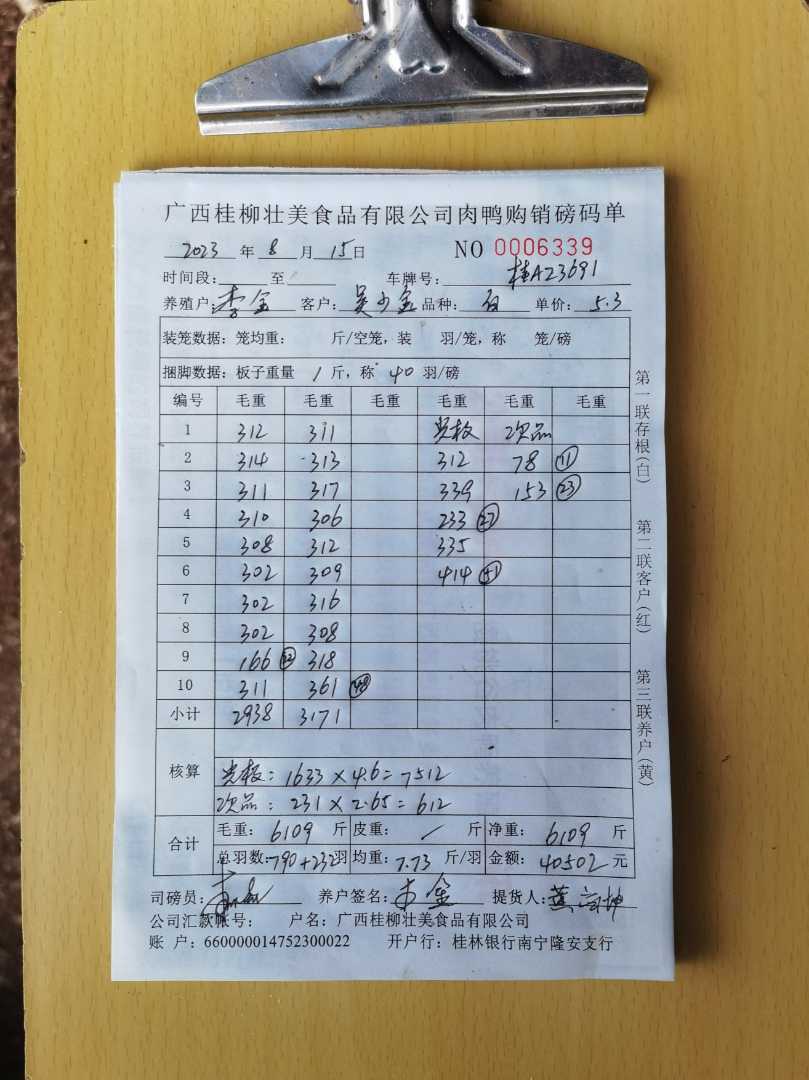 广西桂柳壮美食品有限公司肉鸭购销磅码单
2023 年 8 月 15 日 NO 0006339
时间段: 至 车牌号: 桂A23691
养殖户: 李金 客户: 吴少金 品种: 白 单价: 5.3
装笼数据: 笼均重: 斤/空笼, 装 羽/笼, 称 笼/磅
捆脚数据: 板子重量 1 斤, 称 40 羽/磅
编号 毛重 毛重 毛重 毛重 毛重 毛重
1 312 311 光板 次品
2 314 313 312 78 ⑪
3 311 317 339 153 ㉓
4 310 306 233 ㉗
5 308 312 335
6 302 309 414 ㊶
7 302 316
8 302 308
9 166 ㉒ 318
10 311 361 ㊽
小计 2938 3171
核算
光板: 1633 × 4.6 = 7512
次品: 231 × 2.65 = 612
合计
毛重: 6109 斤 皮重: / 斤 净重: 6109 斤
总羽数: 790+232 羽 均重: 7.73 斤/羽 金额: 40502 元
司磅员: 养户签名: 李金 提货人: 黄
公司汇款帐号: 户名: 广西桂柳壮美食品有限公司
账 户: 660000014752300022 开户行: 桂林银行南宁隆安支行
第一联存根(白) 第二联客户(红) 第三联养户(黄)